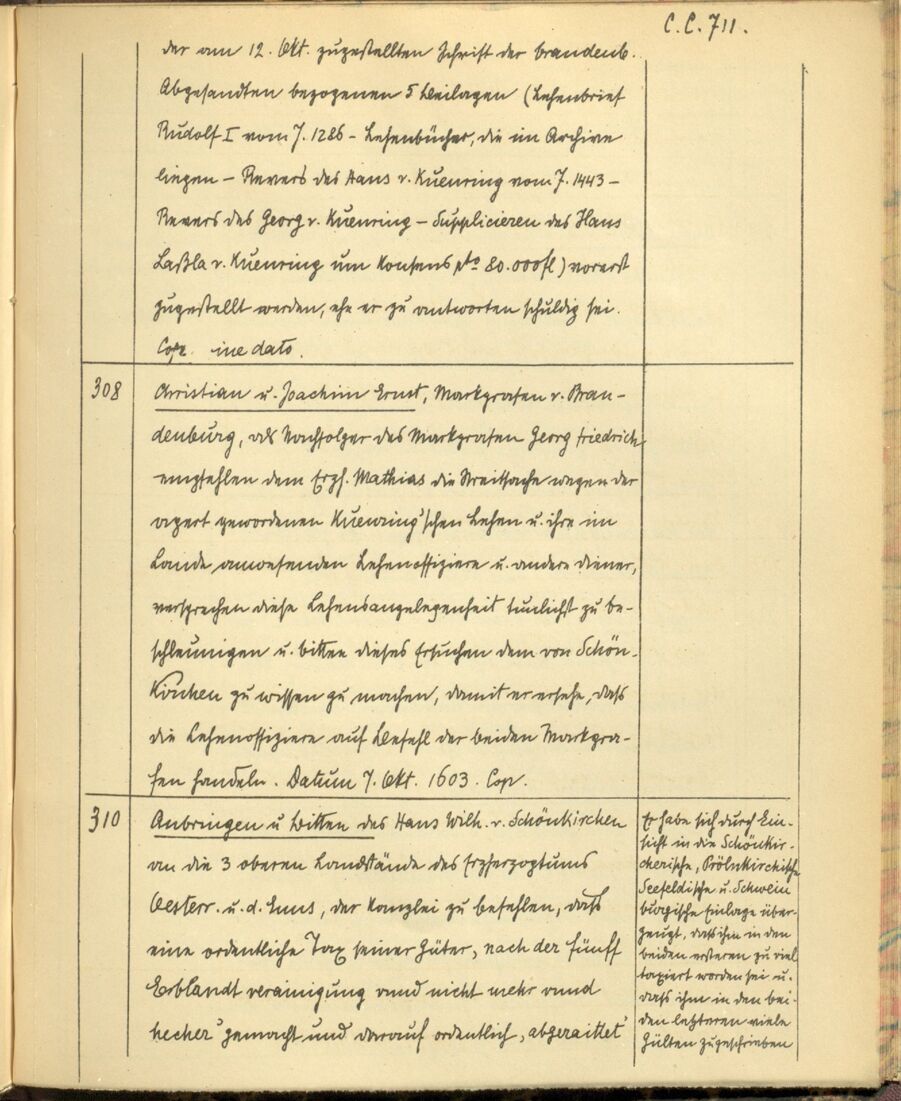 C.C. 711.
der am 12. Okt. zugestellten Schrift der brandenb.
Abgesandten bezogenen 5 Beilagen (Lehenbrief
Rudolf I vom J. 1286 – Lehenbücher, die im Archive
liegen – Revers des Hans v. Kuenring vom J. 1443 –
Revers des Georg v. Kuenring – Supplicieren des Hans
Laßla v. Kuenring um Konsens pto 80.000 fl) vorerst
zugestellt werden, ehe er zu antworten schuldig sei.
Cop. sine dato.
308
Christian u. Joachim Ernst, Markgrafen v. Bran-
denburg, als Nachfolger des Markgrafen Georg Friedrich
empfehlen dem Erzh. Mathias die Streitsache wegen der
apert gewordenen Kuenring'schen Lehen u. ihre im
Lande anwesenden Lehenoffiziere u. andere Diener,
versprechen diese Lehensangelegenheit tunlichst zu be-
schleunigen u. bitten dieses Ersuchen dem von Schön-
kirchen zu wissen zu machen, damit er ersehe, daß
die Lehenoffiziere auf Befehl der beiden Markgra-
fen handeln. Datum 7. Okt. 1603. Cop.
310
Anbringen u Bitten des Hans Wilh. v. Schönkirchen
an die 3 oberen Landstände des Erzherzogtums
Oesterr. u. d. Enns, der Kanzlei zu befehlen, daß
eine ordentliche Tax seiner Güter, nach der fünff
Erblandt verainigung vnnd nicht mehr vnnd
hecher' gemacht und darauf ordentlich, abgeraittet'
Er habe sich durch Ein-
sicht in die Schönkir-
cherische, Prölnkirchische
Seefeldische u. Schwein
burgische Einlage über-
zeugt, daß ihm in den
beiden ersteren zu viel
taxiert worden sei u.
daß ihm in den bei-
den letzteren viele
Gülten zugeschrieben